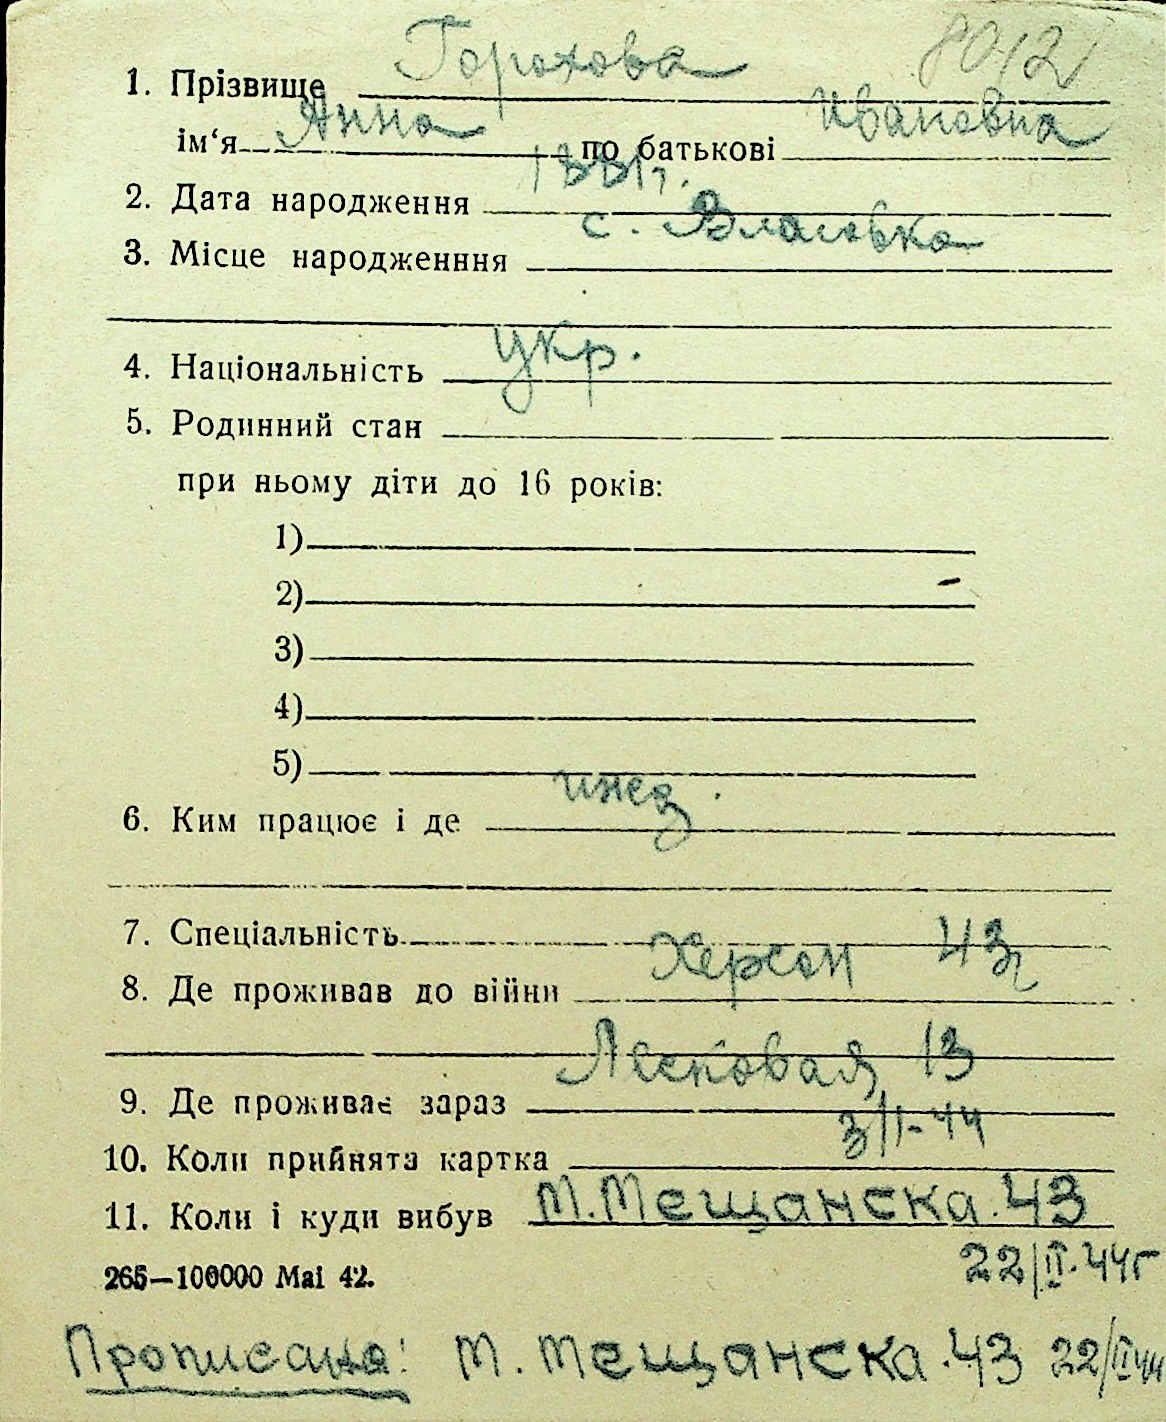 8012
1. Прізвище Горохова
ім‘я Анна по батькові Ивановна
2. Дата народження 1881 г.
3. Місце народженння с. Власовка
4. Національність укр.
5. Родинний стан
при ньому діти до 16 років:
1)
2)
3)
4)
5)
6. Ким працює і де ижд.
7. Спеціальність
8. Де проживав до війни Херсон 43 г
9. Де проживає зараз 13
10. Коли прийнята картка 3/II-44
11. Коли і куди вибув М. Мещанска. 43
22/II. 44 г
265—100000 Mai 42.
Прописана: М. Мещанска. 43 22/II 44